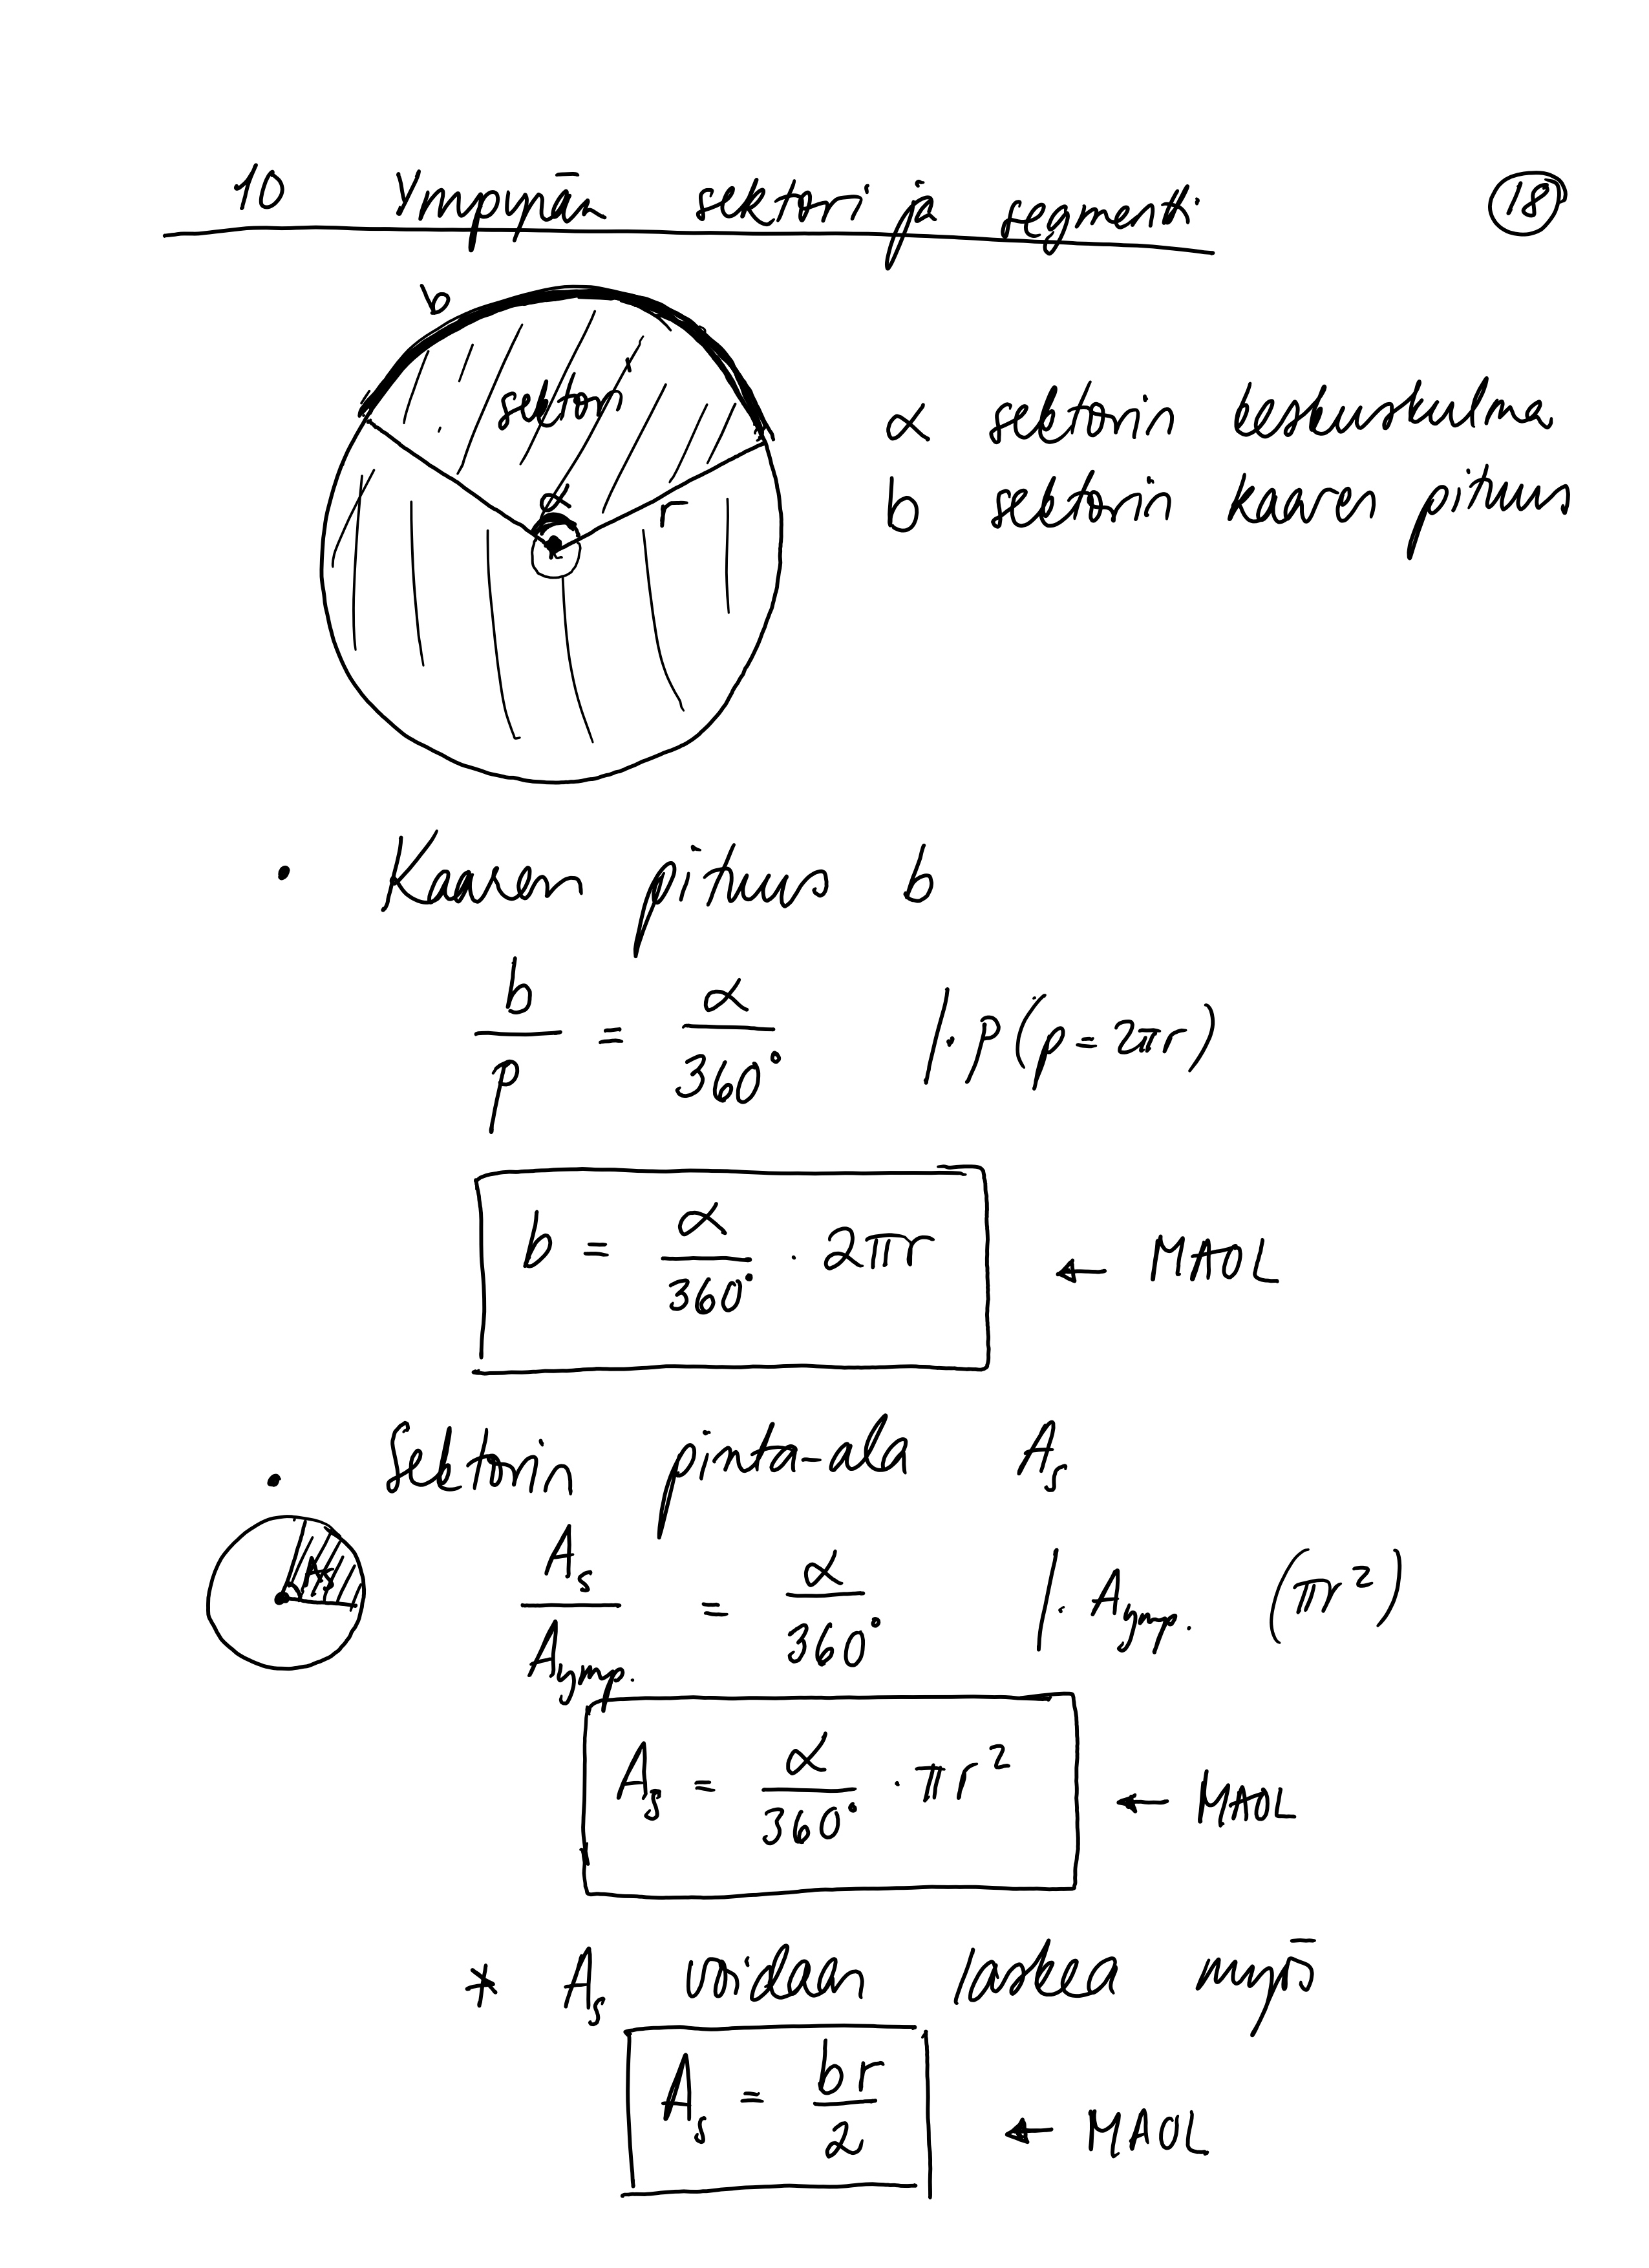 10 Ympyrän sektori ja segmentti 18
b
sektori
α
r
α sektorin keskuskulma
b sektorin kaaren pituus
• Kaaren pituus b
b/p = α/360° |· p (p = 2πr)
b = α/360° · 2πr ← MAOL
• Sektorin pinta-ala A_s
A_s
A_s/A_ymp. = α/360° |· A_ymp. (πr²)
A_s = α/360° · πr² ← MAOL
* A_s voidaan laskea myös
A_s = br/2 ← MAOL